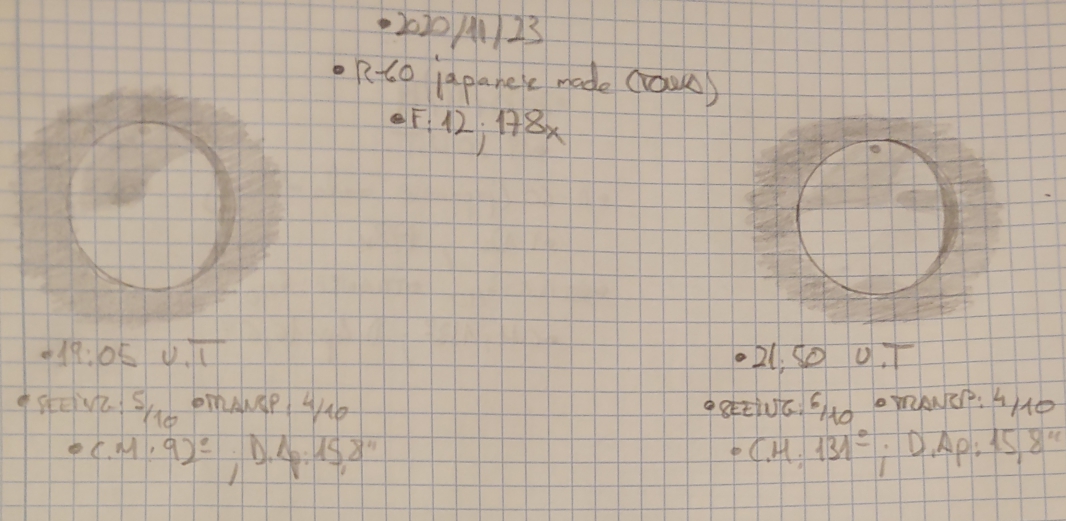 •2020/11/23
•R-60 japanese made (TOWA)
•F:12; 178x
•19:05 U.T
•SEEING: 5/10 •TRANSP: 4/10
•C.M: 92º; D.Ap: 15,8"
•21:50 U.T
•SEEING: /10 •TRANSP: 4/10
•C.M: 131º; D.Ap: 15,8"